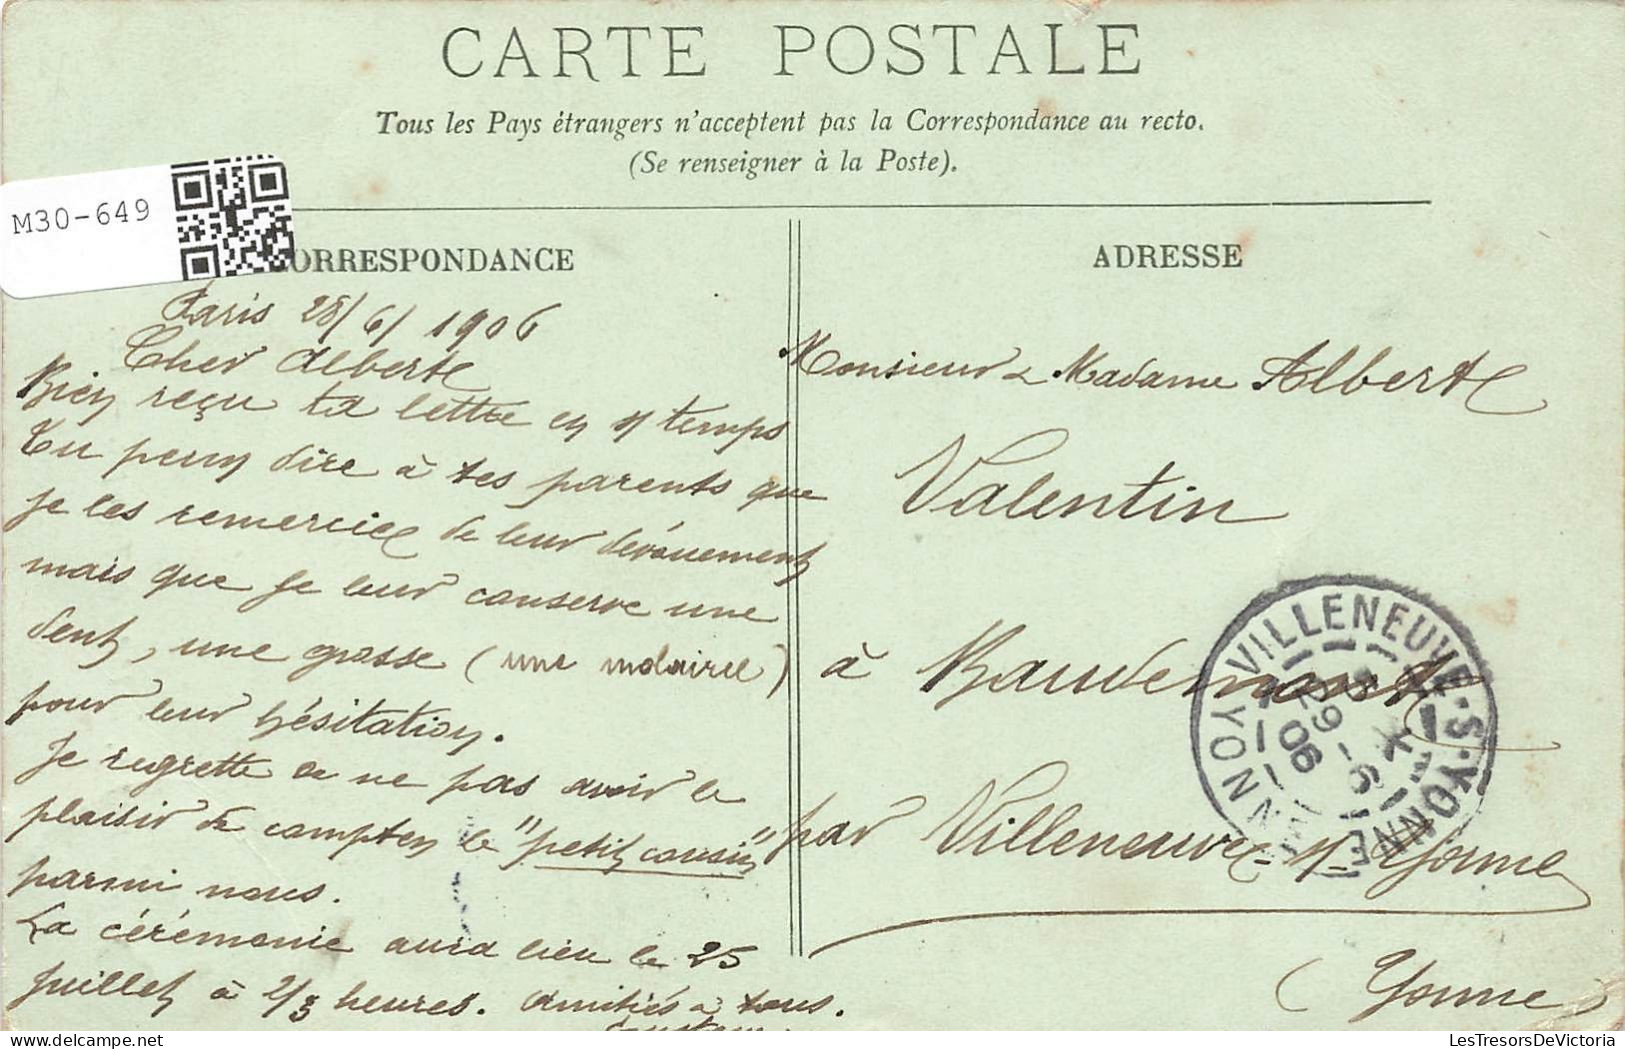 CARTE POSTALE
Tous les Pays étrangers n'acceptent pas la Correspondance au recto.
(Se renseigner à la Poste).
M30-649
ORRESPONDANCE
Paris 28/6/1906
Cher Albert
Bien reçu ta lettre en temps
Tu peux dire à tes parents que
je les remercie de leur dévouement
mais que je leur conserve une
dent, une grosse (une molaire)
pour leur hésitation.
Je regrette de ne pas avoir le
plaisir de compter le "petit cousin"
parmi nous.
La cérémonie aura lieu le 25
Juillet à 2/3 heures. Amitiés à tous.
ADRESSE
Monsieur & Madame Albert
Valentin
à Baudemont
par Villeneuve-s/-Yonne
(Yonne)
VILLENEUVE-S-YONNE
YONNE
29-6
06
LesTresorsDeVictoria